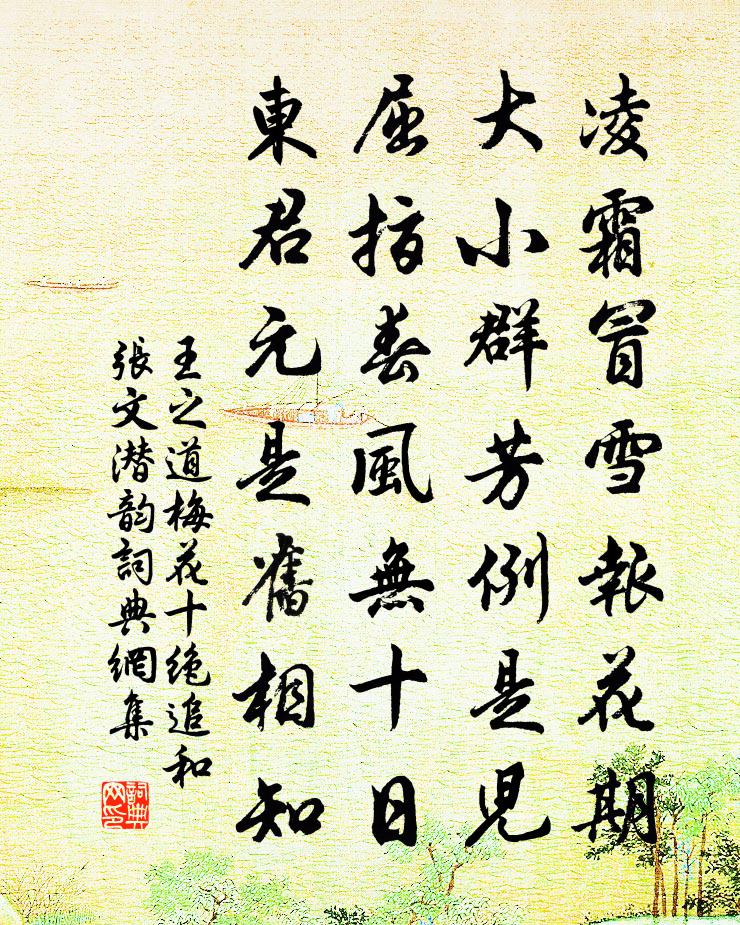 凌霜冒雪報花期
大小群芳例是兒
屈指春風無十日
東君元是舊相知
王之道梅花十絶追和
張文潜韵詞典網集
詞典网印